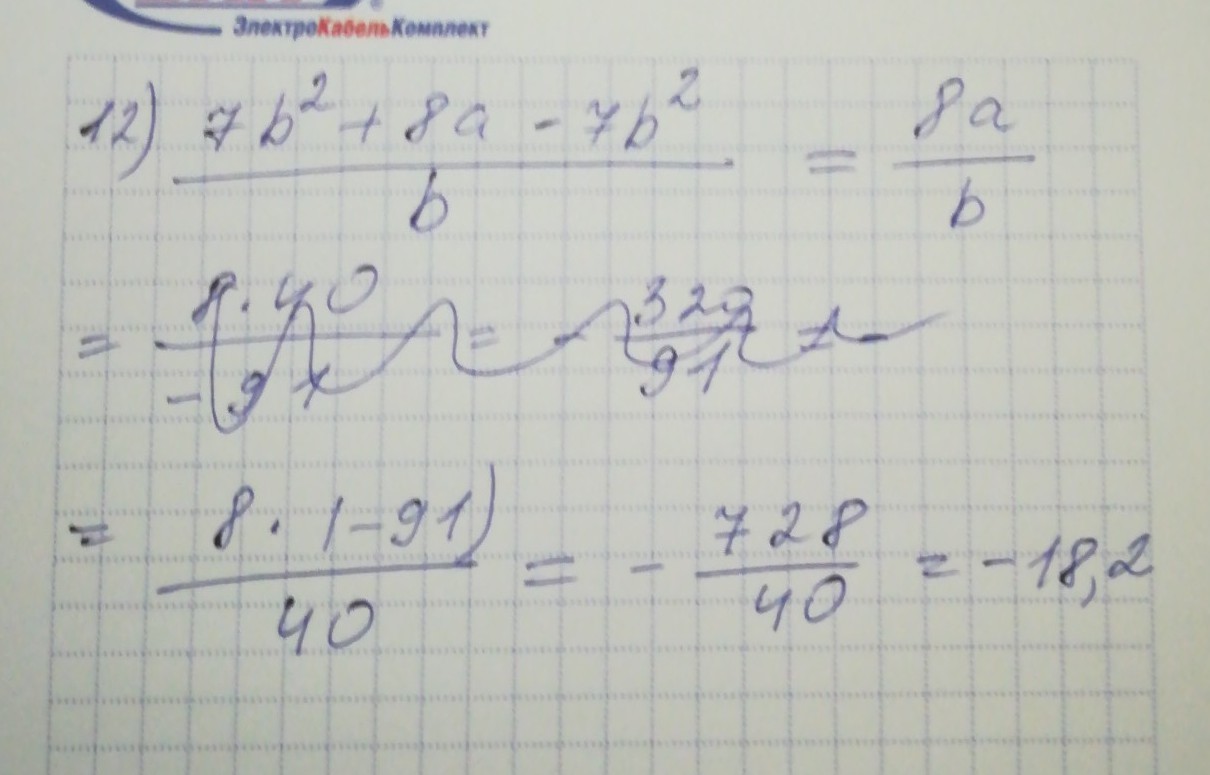 ЭлектроКабельКомплект
12) (7b² + 8a - 7b²)/b = 8a/b
= (8·40)/(-91) = - 320/91 = -
= (8·(-91))/40 = - 728/40 = -18,2